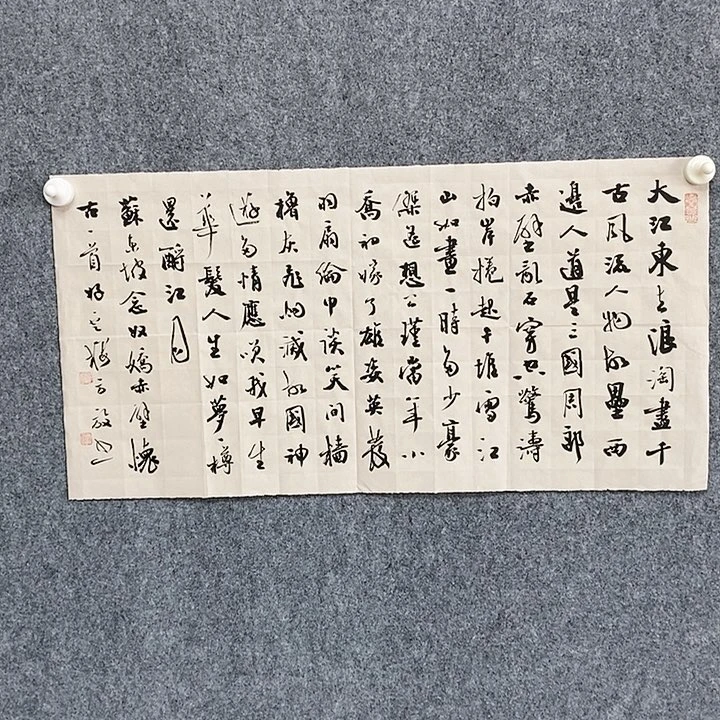 大江東去浪淘盡千
古風流人物故壘西
邊人道是三國周郎
赤壁亂石穿空驚濤
拍岸捲起千堆雪江
山如畫一時多少豪
傑遥想公瑾當年小
喬初嫁了雄姿英發
羽扇綸巾談笑間檣
櫓灰飛烟滅故國神
遊多情應笑我早生
華髮人生如夢一樽
還酹江月
蘇東坡念奴嬌赤壁懷
古一首